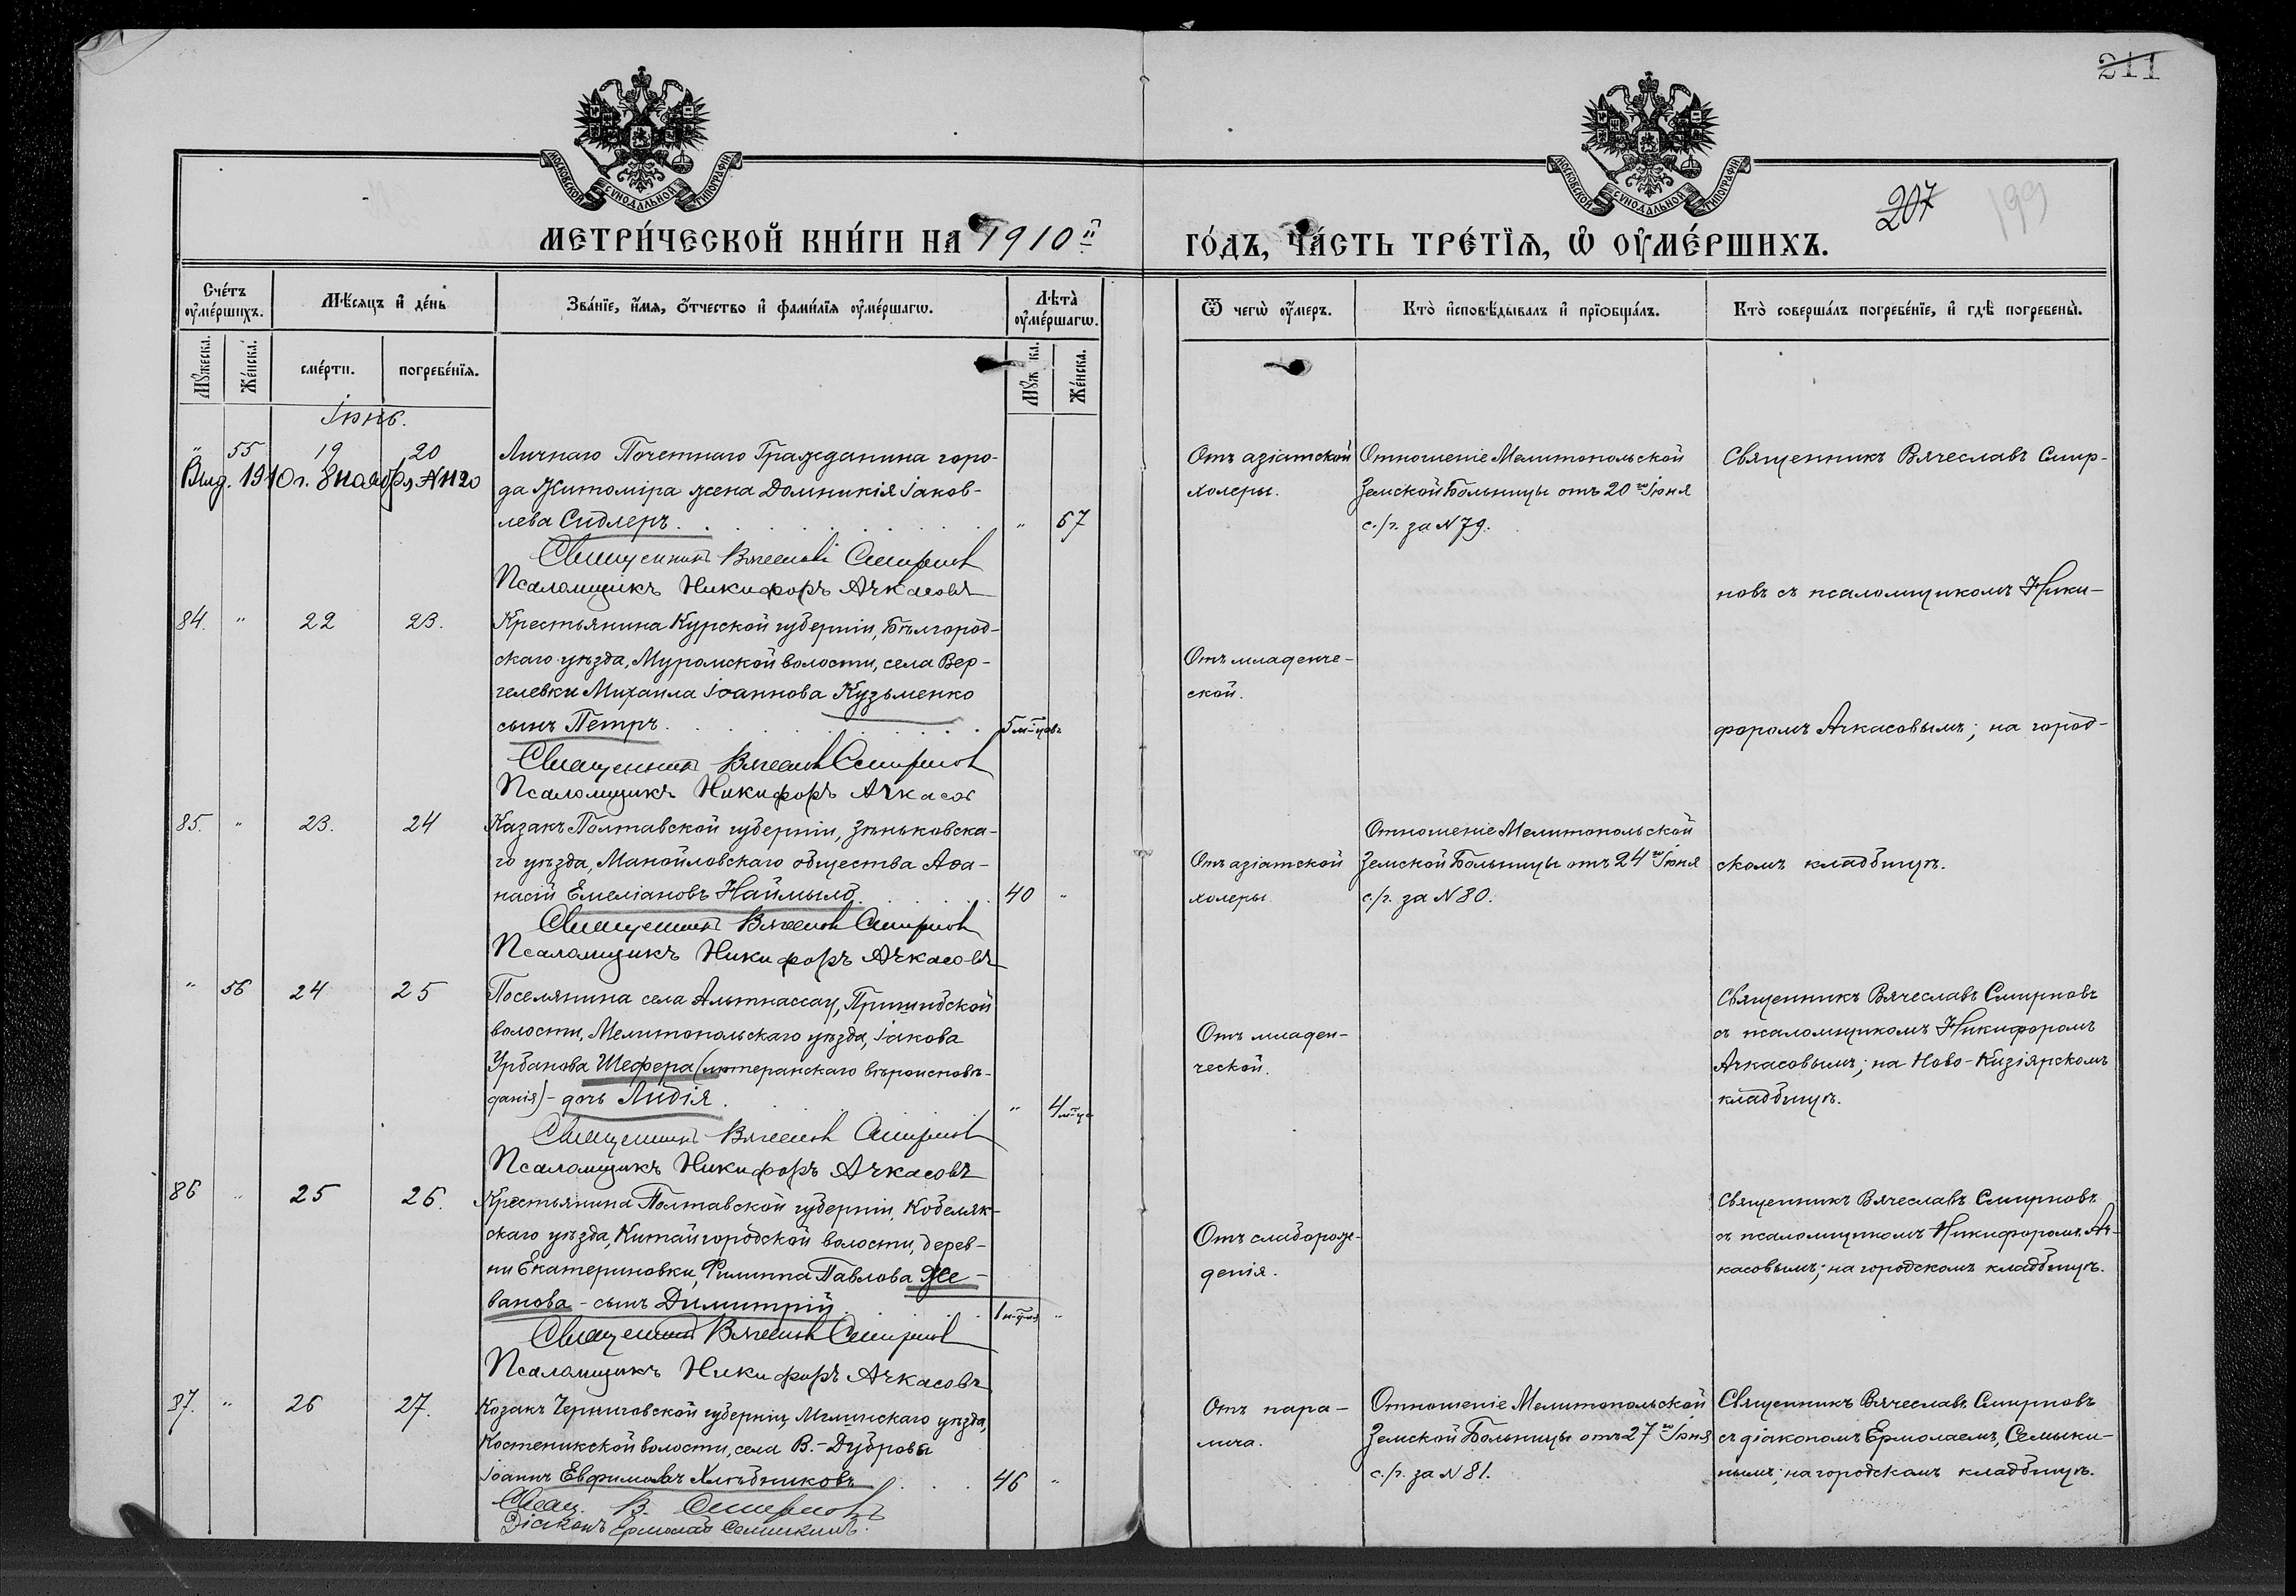 211
МОСКОВСКОЙ СУНОДАЛЬНОЙ ТИПОГРАФІИ
МОСКОВСКОЙ СУНОДАЛЬНОЙ ТИПОГРАФІИ
207
199
МЕТРИ́ЧЕСКОЙ КНИ́ГИ НА 1910й
ГО́ДЪ, ЧА́СТЬ ТРЕ́ТІѦ, Ѡ ОУ҆МЕ́РШИХЪ.
Сче́тъ оу҆ме́ршихъ.
Мѣ́сяцъ и҆ де́нь
Зва́нїе, и҆́мѧ, ѻ҆́тчество и҆ фами́лїѧ оу҆ме́ршагѡ.
Лѣта̀ оу҆ме́ршагѡ.
Ѿ чегѡ̀ оу҆́меръ.
Кто̀ и҆сповѣ́дывалъ и҆ прїѡбща́лъ.
Кто̀ соверша́лъ погребе́нїе, и҆ гдѣ̀ погребены̀.
Му́жеска.
Же́нска.
сме́рти.
погребе́нїѧ.
Му́ж ка.
Же́нска.
Іюнь.
" 55 19 20
Выд. 1910 г. 8 ноября № 1120
Личнаго Почетнаго Гражданина горо-
да Житоміра жена Домникія Іаков-
лева Сидлеръ. " 67
Священникъ Вячеславъ Смирновъ
Псаломщикъ Никифоръ Ачкасовъ
Отъ азіатской
холеры.
Отношеніе Мелитопольской
Земской Больницы отъ 20го Іюня
с./г. за № 79.
Священникъ Вячеславъ Смир-
новъ съ псаломщикомъ Ники-
форомъ Ачкасовымъ; на город-
скомъ кладбищѣ.
84. " 22 23.
Крестьянина Курской губерніи, Бѣлгород-
скаго уѣзда, Муромской волости, села Вер-
гелевки Михаила Іоаннова Кузьменко
сынъ Петръ. 5 м-цовъ
Священникъ Вячеславъ Смирновъ
Псаломщикъ Никифоръ Ачкасов
Отъ младенче-
ской.
85. " 23. 24
Казакъ Полтавской губерніи, Зѣньковска-
го уѣзда, Манойловскаго общества Аѳа-
насій Емеліановъ Наймыло. 40 "
Священникъ Вячеславъ Смирновъ
Псаломщикъ Никифоръ Ачкасовъ
Отъ азіатской
холеры
Отношеніе Мелитопольской
Земской Больницы отъ 24го Іюня
с./г. за № 80.
" 56 24 25
Поселянина села Альтнассау, Пришибской
волости, Мелитопольскаго уѣзда, Іакова
Урбанова Шефера (лютеранскаго вѣроисповѣ-
данія) - дочь Лидія. " 4 м-ца
Священникъ Вячеславъ Смирновъ
Псаломщикъ Никифоръ Ачкасовъ
Отъ младен-
ческой.
Священникъ Вячеславъ Смирновъ
съ псаломщикомъ Никифоромъ
Ачкасовымъ; на Ново-Кизіярскомъ
кладбищѣ.
86 " 25 26.
Крестьянина Полтавской губерніи, Кобеляк-
скаго уѣзда, Китайгородской волости, дерев-
ни Екатериновки, Филиппа Павлова Же-
ванова - сынъ Димитрій. "
Священникъ Вячеславъ Смирновъ
Псаломщикъ Никифоръ Ачкасовъ
Отъ слаборож-
денія.
Священникъ Вячеславъ Смирновъ
съ псаломщикомъ Никифоромъ Ач-
касовымъ; на городскомъ кладбищѣ.
87. " 26 27.
Козакъ Черниговской губерніи, Мглинскаго уѣзда,
Костеникской волости, села В.-Дубровы
Іоаннъ Евфимовъ Хлѣбниковъ. 46 "
Свящ. В. Смирновъ
Діаконъ Ермолай Семыкинъ.
Отъ пара-
лича.
Отношеніе Мелитопольской
Земской Больницы отъ 27го Іюня
с./г. за № 81.
Священникъ Вячеславъ Смирновъ
съ діакономъ Ермолаемъ Семыки-
нымъ; на городскомъ кладбищѣ.